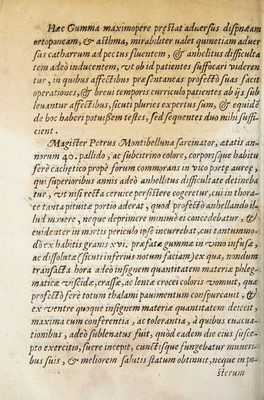 Hæc Gumma maximopere præstat aduersus dispnæam
ortopnœam, & asthma, mirabiliter ualet quinetiam aduer
sus catharrum ad pectus fluentem, & anhelitus difficulta
tem adeò inducentem, ut ob id patientes suffocari viderén
tur, in quibus affectibus præsentaneas profectò suas facit
operationes, & breui temporis curriculo patientes ab ijs sub
leuantur affectibus, sicuti pluries expertus sum, & equidē
de hoc haberi potussem testes, sed sequentes duo mihi suffi-
cient.
Magister Petrus Montibelluna sarcinator, ætatis an-
norum 40. pallido, ac subcitrino colore, corporisque habitu
ferè cachetico propè forum commorans in vico portæ aureæ,
qui superioribus annis adeò anhellitus difficultate detineba
tur, ut nisi recta ceruice persistere cogeretur, cui in thora-
ce tanta pituitæ portio aderat, quod profectò anhellando il-
lud muere, neque deprimere minimè es concedebatur, &
euidenter in mortis periculo ipse incurrebat, cui tantummo-
dò ex habitis granis xvi. præfatæ gummæ in vino infusæ,
ac dissolutæ (sicuti inferius notum faciam) ex qua, nondum
transacta hora adeò insignem quantitatem materiæ phleg-
maticæ viscidæ, crassæ, ac lentæ crocei coloris vomuit, qua
profectò ferè totum thalami pauimentum conspurcauit, &
ex ventre quoque insignem materiæ quantitatem deiecit,
maxima cum conferentia, ac tolerantia, à quibus euacua-
tionibus, adeò subleuatus fuit, quòd eadem die eius suscæ-
pto exercitio, fuere incepit, cunctisque fungebatur muneri-
bus suis, & meliorem salutis statum obtinuit, neque in po-
sterum